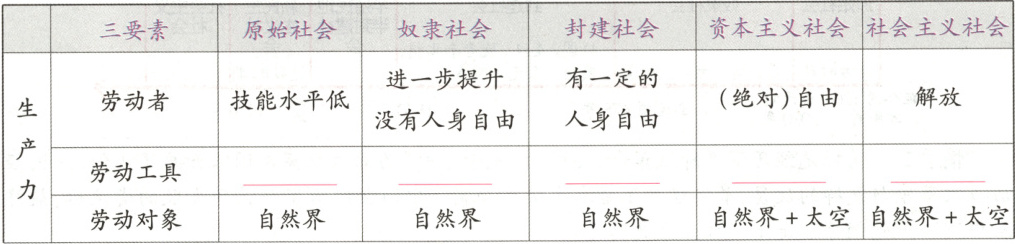 三要素 原始社会 奴隶社会 封建社会 资本主义社会 社会主义社会
生产力
劳动者 技能水平低 进一步提升 没有人身自由 有一定的 人身自由 (绝对)自由 解放
劳动工具
劳动对象 自然界 自然界 自然界 自然界+太空 自然界+太空